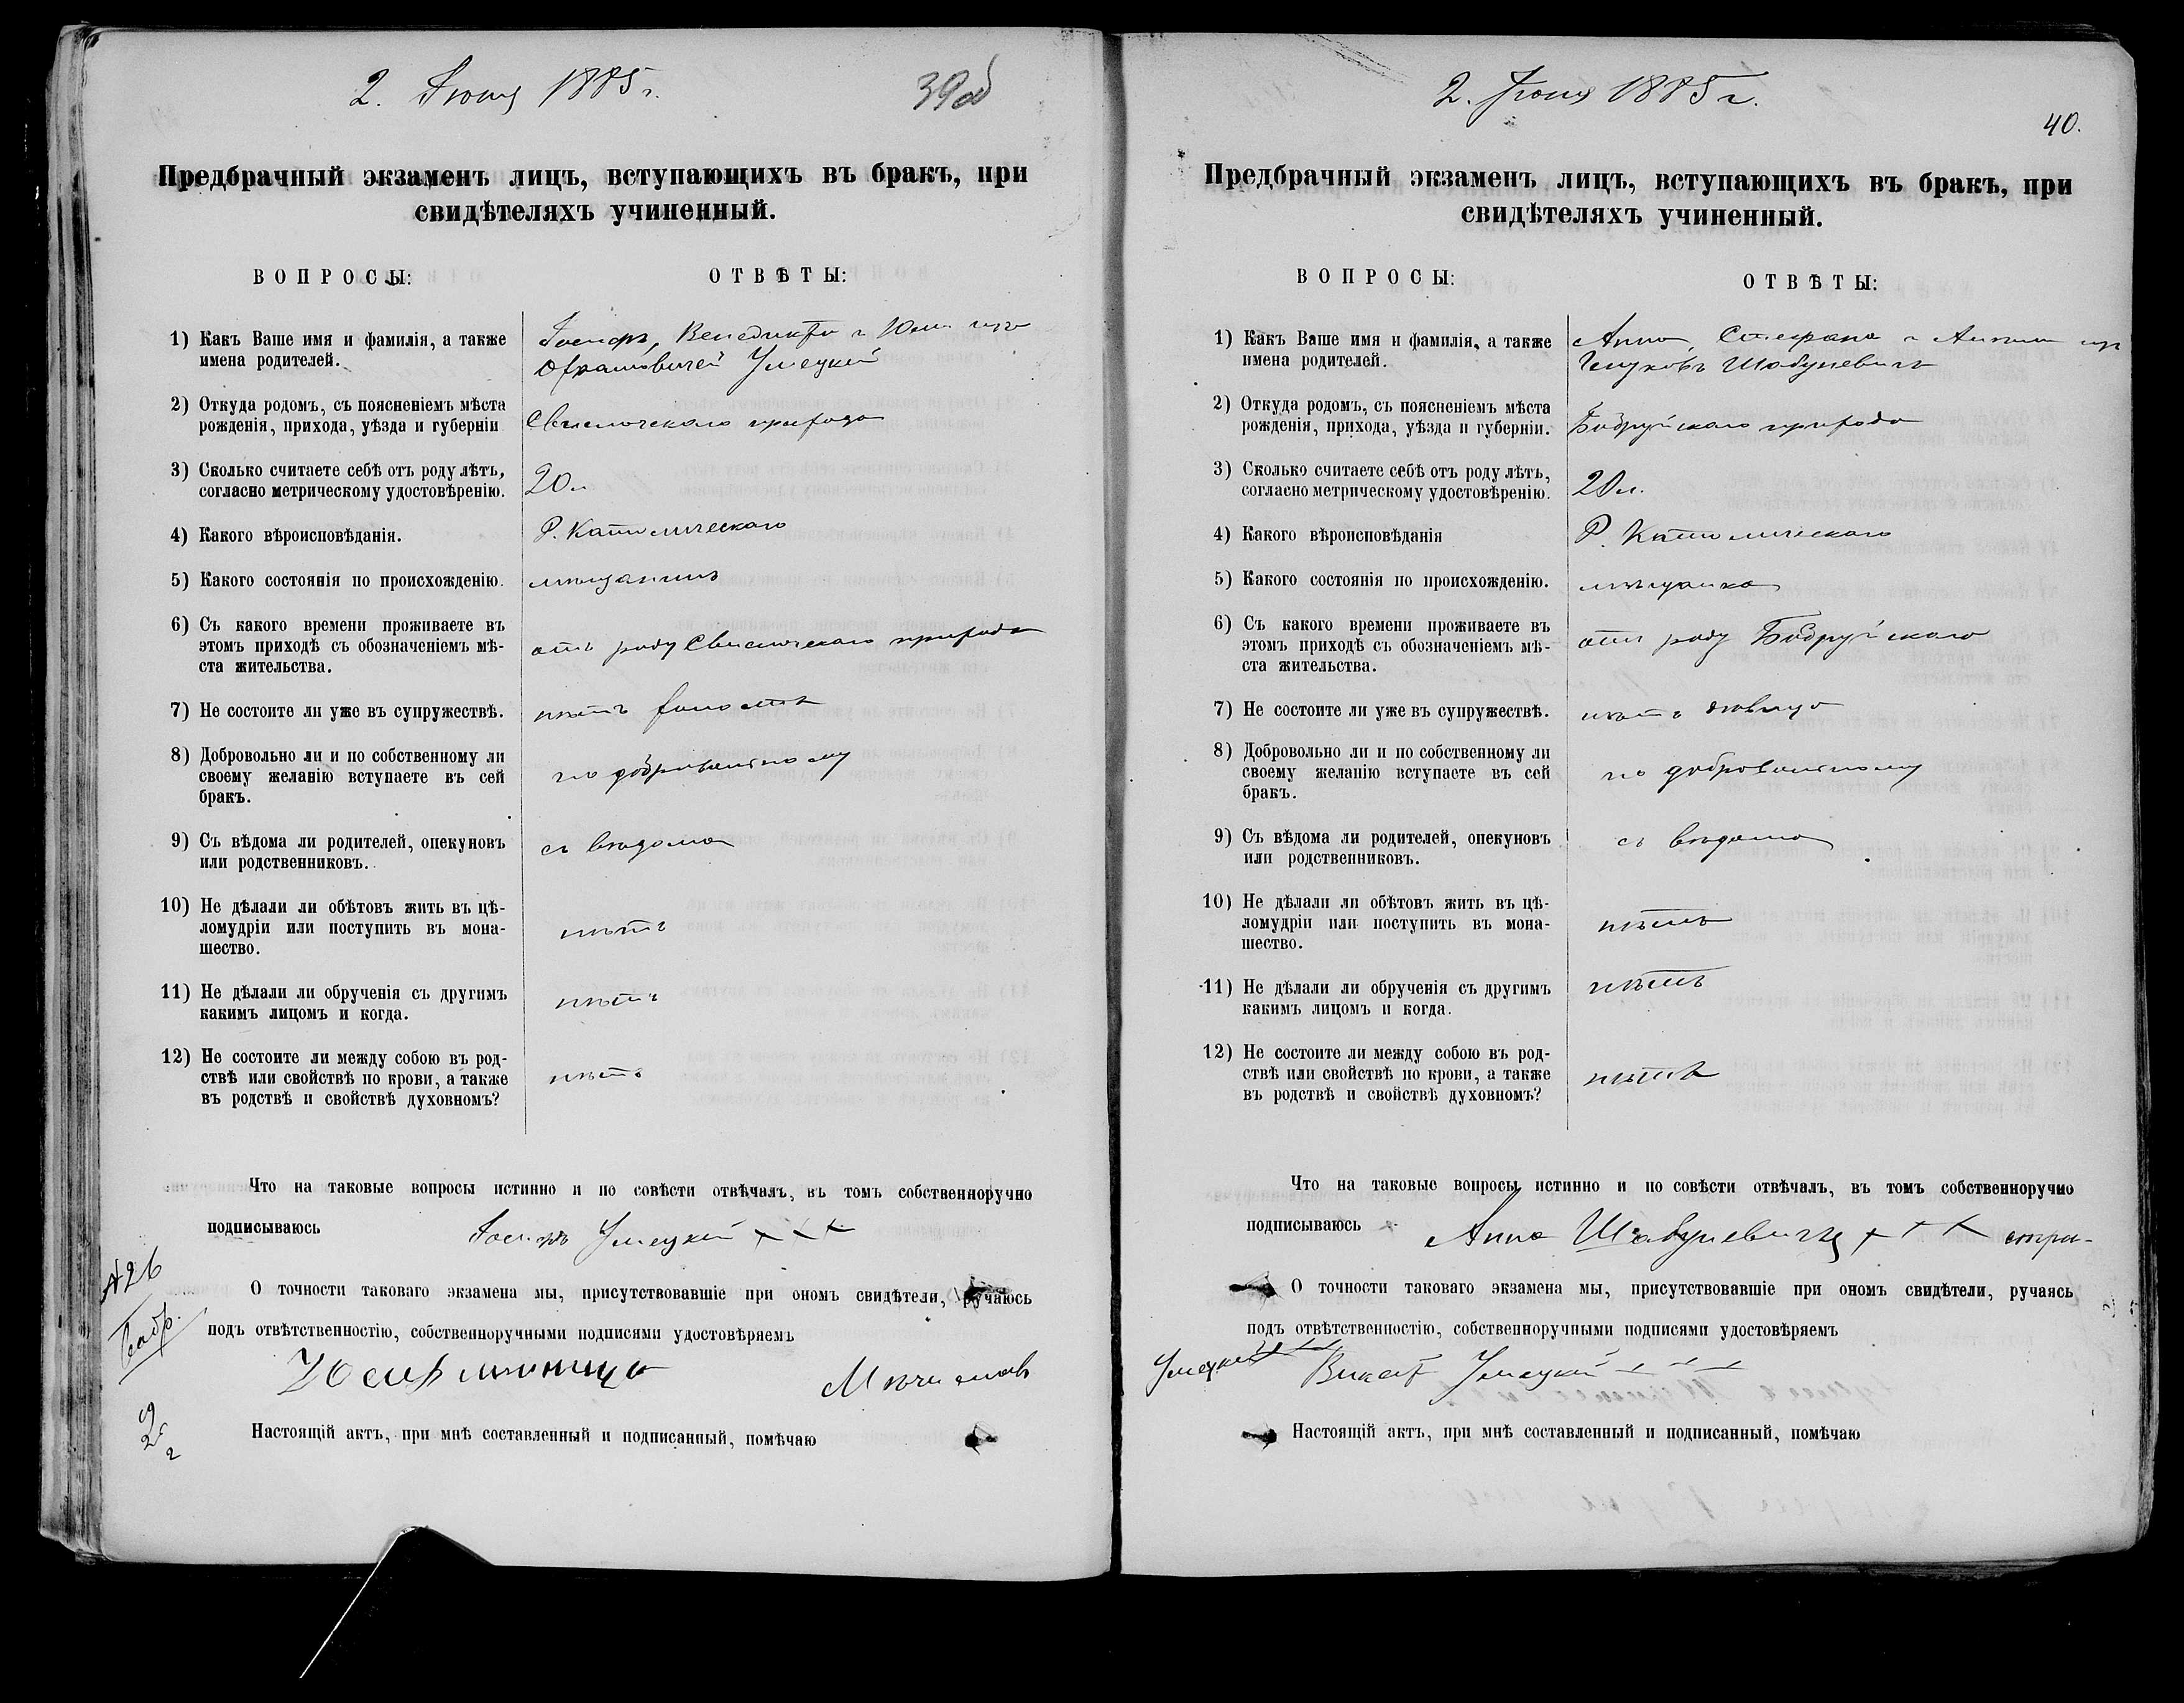 2. Июня 1885 г.
39об
Предбрачный экзаменъ лицъ, вступающихъ въ бракъ, при
свидѣтеляхъ учиненный.
ВОПРОСЫ:
ОТВѢТЫ:
1) Какъ Ваше имя и фамилія, а также
имена родителей.
Іосифъ, Венедикта и Юліи изъ
Ахрамовичей Умецкій
2) Откуда родомъ, съ поясненіемъ мѣста
рожденія, прихода, уѣзда и губерніи
Свислочскаго прихода
3) Сколько считаете себѣ отъ роду лѣтъ,
согласно метрическому удостовѣренію.
20 л.
4) Какого вѣроисповѣданія.
Р. Католическаго
5) Какого состоянія по происхожденію.
мѣщанинъ
6) Съ какого времени проживаете въ
этомъ приходѣ съ обозначеніемъ мѣ-
ста жительства.
отъ роду Свислочскаго прихода
7) Не состоите ли уже въ супружествѣ.
нѣтъ холостъ
8) Добровольно ли и по собственному ли
своему желанію вступаете въ сей
бракъ.
по добровольному
9) Съ вѣдома ли родителей, опекуновъ
или родственниковъ.
съ вѣдома
10) Не дѣлали ли обѣтовъ жить въ цѣ-
ломудріи или поступить въ мона-
шество.
нѣтъ
11) Не дѣлали ли обрученія съ другимъ
какимъ лицомъ и когда.
нѣтъ
12) Не состоите ли между собою въ род-
ствѣ или свойствѣ по крови, а также
въ родствѣ и свойствѣ духовномъ?
нѣтъ
Что на таковые вопросы истинно и по совѣсти отвѣчалъ, въ томъ собственноручно
подписываюсь
Іосифъ Умецкій + + +
№ 26
Бобр.
О точности таковаго экзамена мы, присутствовавшіе при ономъ свидѣтели, ручаюсь
подъ отвѣтственностію, собственноручными подписями удостовѣряемъ
Настоящій актъ, при мнѣ составленный и подписанный, помѣчаю
2. Июня 1885 г.
40.
Предбрачный экзаменъ лицъ, вступающихъ въ бракъ, при
свидѣтеляхъ учиненный.
ВОПРОСЫ:
ОТВѢТЫ:
1) Какъ Ваше имя и фамилія, а также
имена родителей.
Анна, Стефана и Анны изъ
Шабуневичъ
2) Откуда родомъ, съ поясненіемъ мѣста
рожденія, прихода, уѣзда и губерніи.
Бобруйскаго прихода
3) Сколько считаете себѣ отъ роду лѣтъ,
согласно метрическому удостовѣренію.
20 л.
4) Какого вѣроисповѣданія
Р. Католическаго
5) Какого состоянія по происхожденію.
мѣщанка
6) Съ какого времени проживаете въ
этомъ приходѣ съ обозначеніемъ мѣ-
ста жительства.
отъ роду Бобруйскаго
7) Не состоите ли уже въ супружествѣ.
нѣтъ дѣвица
8) Добровольно ли и по собственному ли
своему желанію вступаете въ сей
бракъ.
по добровольному
9) Съ вѣдома ли родителей, опекуновъ
или родственниковъ.
съ вѣдома
10) Не дѣлали ли обѣтовъ жить въ цѣ-
ломудріи или поступить въ мона-
шество.
нѣтъ
11) Не дѣлали ли обрученія съ другимъ
какимъ лицомъ и когда.
нѣтъ
12) Не состоите ли между собою въ род-
ствѣ или свойствѣ по крови, а также
въ родствѣ и свойствѣ духовномъ?
нѣтъ
Что на таковые вопросы истинно и по совѣсти отвѣчалъ, въ томъ собственноручно
подписываюсь
Анна Шабуневичъ + + +
О точности таковаго экзамена мы, присутствовавшіе при ономъ свидѣтели, ручаясь
подъ отвѣтственностію, собственноручными подписями удостовѣряемъ
Умецкій + + + Умецкій + + +
Настоящій актъ, при мнѣ составленный и подписанный, помѣчаю